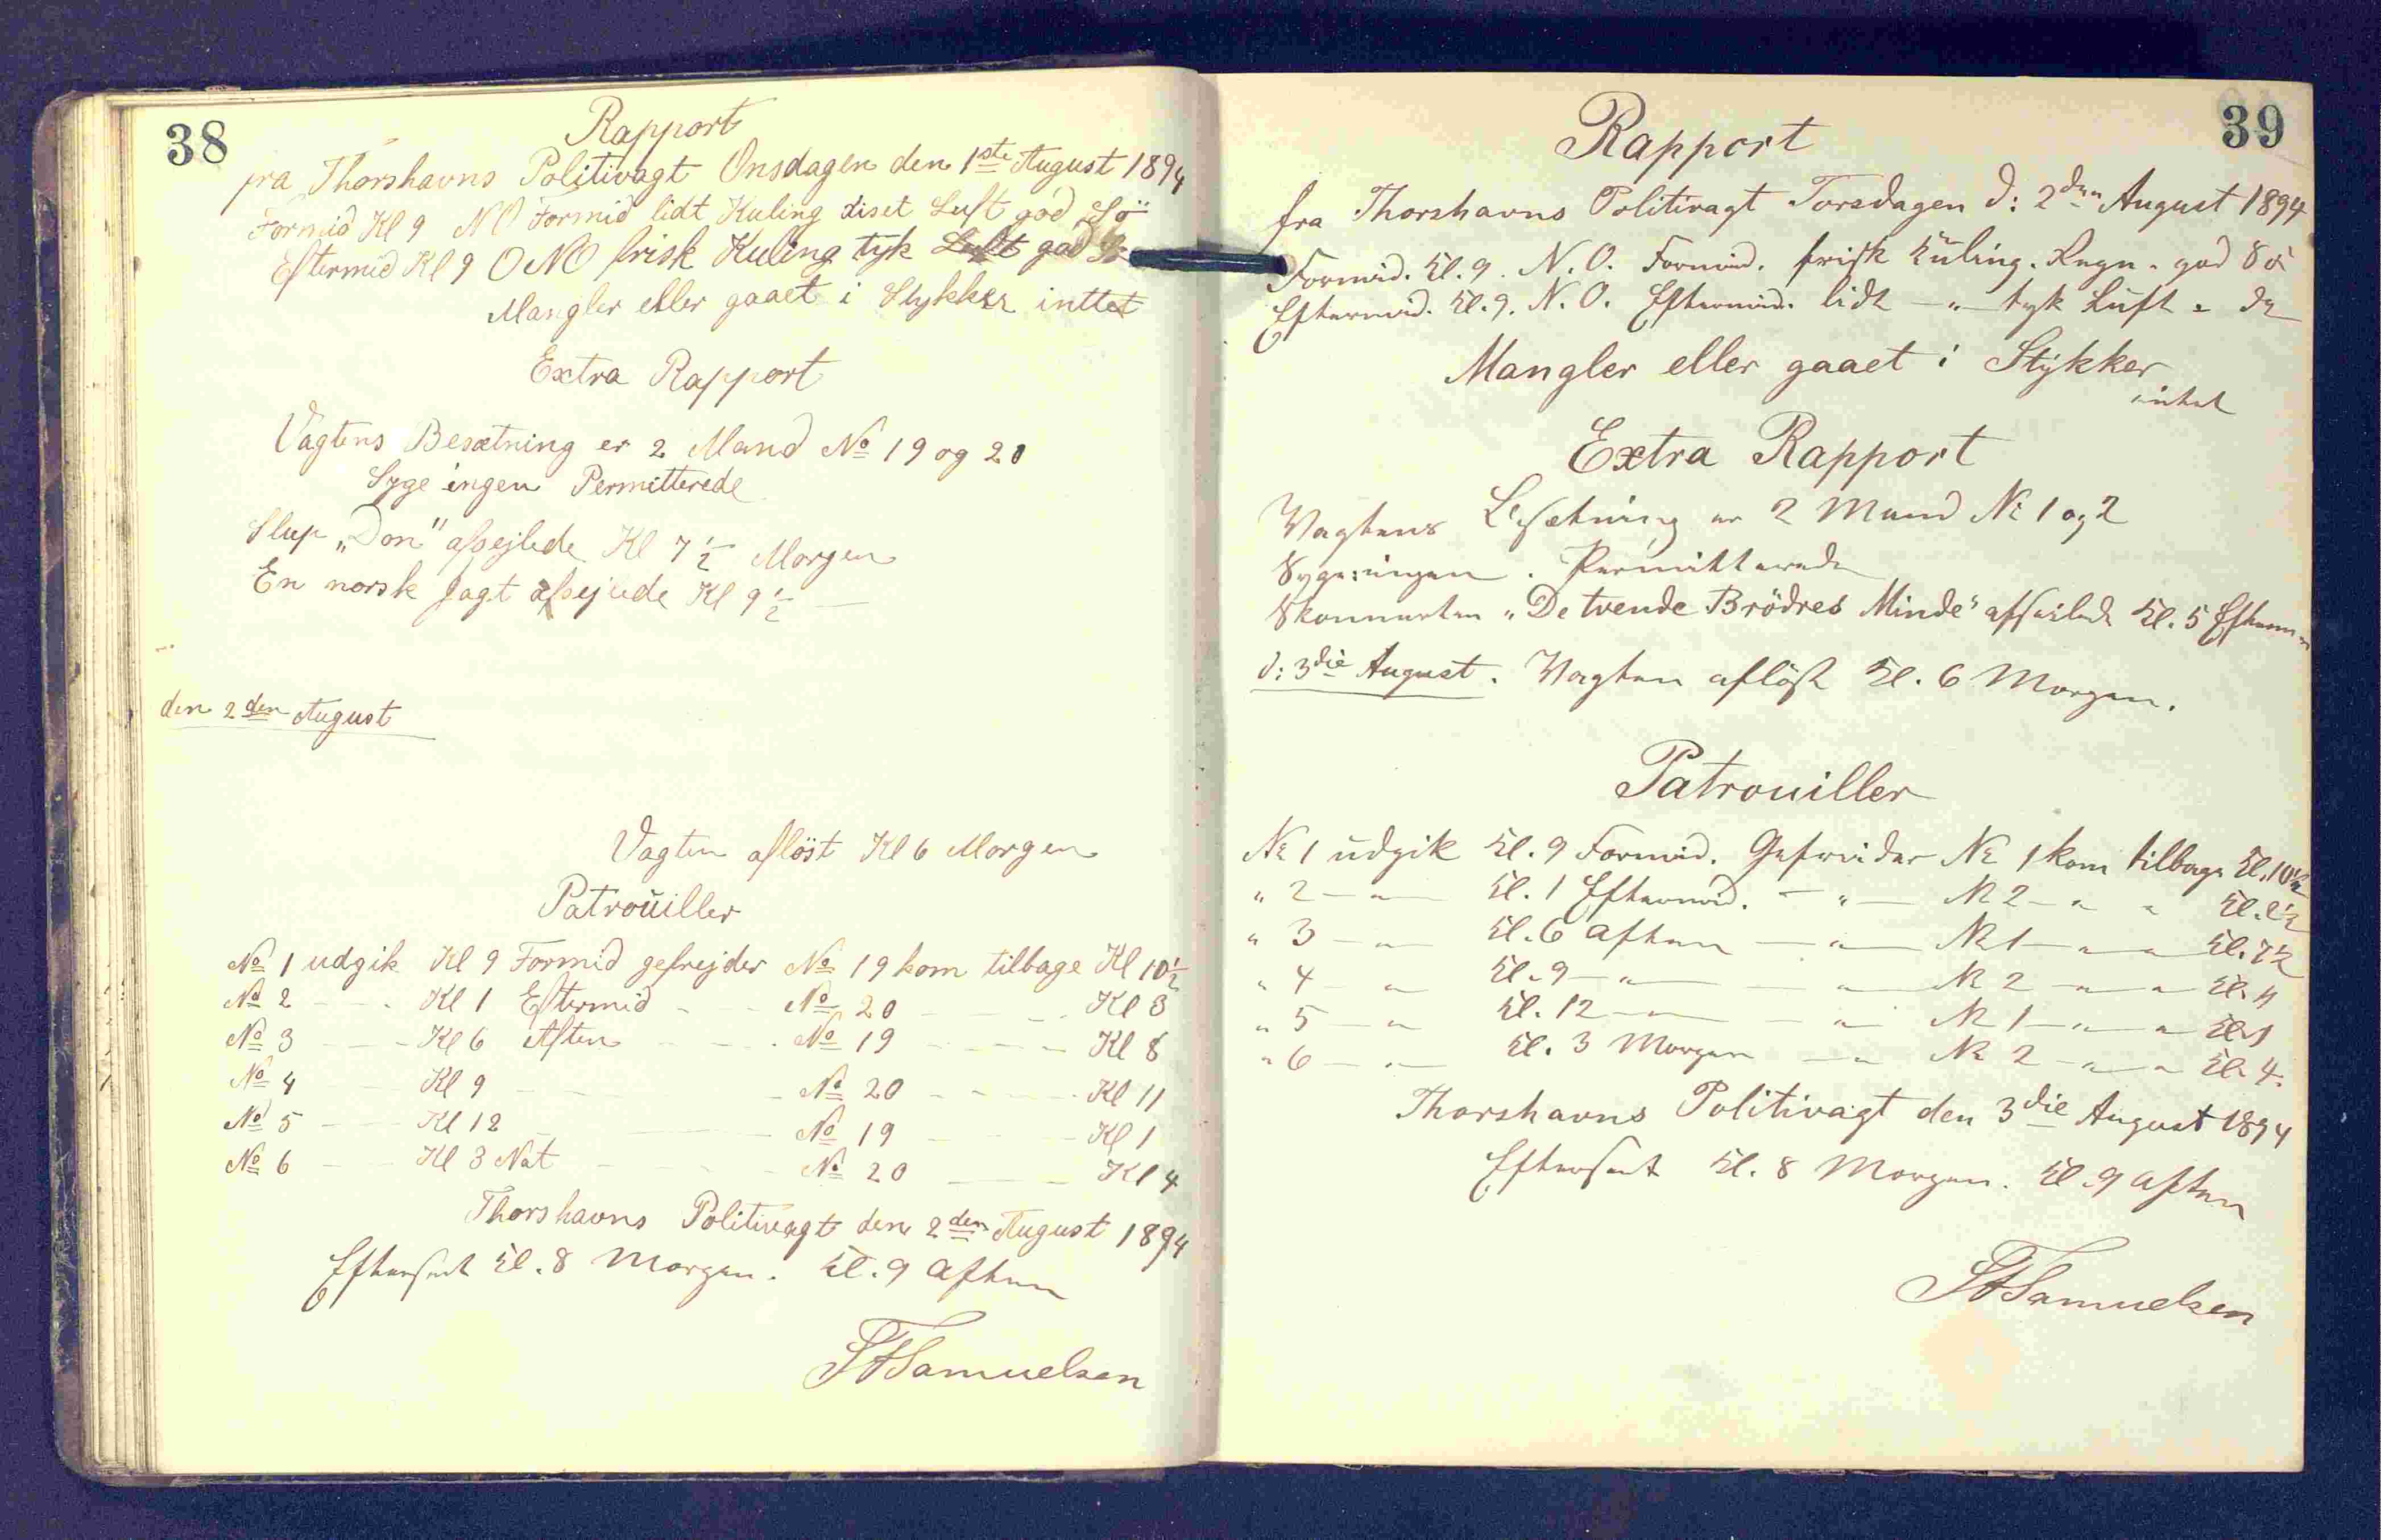 38
Rapport
fra Thorshavns Politivagt Onsdagen den 1ste August 1894
Formid Kl 9 NO Formid lidt Kuling diset Luft god Sö
Eftermid Kl 9 ONO frisk Kuling tyk Luft god
Mangler eller gaaet i Stykker inttet
Extra Rapport
Vagtens Besætning er 2 Mand No 19 og 20
Syge ingen Permitterede
Slup „Don" afsejlede Kl 7½ Morgen
En norsk Jagt afsejlede Kl 9½ —
den 2den August
Vagten aflöst Kl 6 Morgen
Patrouiller
No 1 udgik Kl 9 Formid gefrejder No 19 kom tilbage Kl 10½
No 2 — - Kl 1 Eftermid - - No 20 - - - Kl 3
No 3 — - Kl 6 Aften - - - No 19 - - - Kl 8
No 4 — Kl 9 - - - No 20 - - - Kl 11
No 5 — Kl 12 - — No 19 - — Kl 1
No 6 — Kl 3 Nat - - - No 20 — Kl 4
Thorshavns Politivagt den 2den August 1894
Efterseet Kl. 8 Morgen. Kl. 9 Aften
Samuelsen
39
Rapport
fra Thorshavns Politivagt Torsdagen d: 2den August 1894
Formid. Kl. 9. N.O. Formid. frisk Kuling. Regn - god Sö
Eftermid. Kl. 9. N.O. Eftermid. lidt — " — tyk Luft - do
Mangler eller gaaet i Stykker
intet
Extra Rapport
Vagtens Besætning er 2 Mand No 1 og 2
Syge: ingen. Permitterede
Skonnerten „De tvende Brödres Minde" afseilede Kl. 5 Efterm
d: 3die August. Vagten aflöst Kl. 6 Morgen.
Patrouiller
No 1 udgik Kl. 9 Formid. Gefreider No 1 kom tilbage Kl. 10½
" 2 — " — Kl. 1 Eftermid. — " — No 2 — " " Kl. 2½
" 3 — " — Kl. 6 Aften — " — No 1 — " " Kl. 7½
" 4 — " Kl. 9 — " — — " — No 2 — " — " Kl. 11
" 5 — " Kl. 12 — " — — " No 1 — " — " Kl. 1
" 6 — " — Kl. 3 Morgen — " No 2 — " — " Kl. 4.
Thorshavns Politivagt den 3die August 1894
Efterseet Kl. 8 Morgen. Kl. 9 Aften
Samuelsen